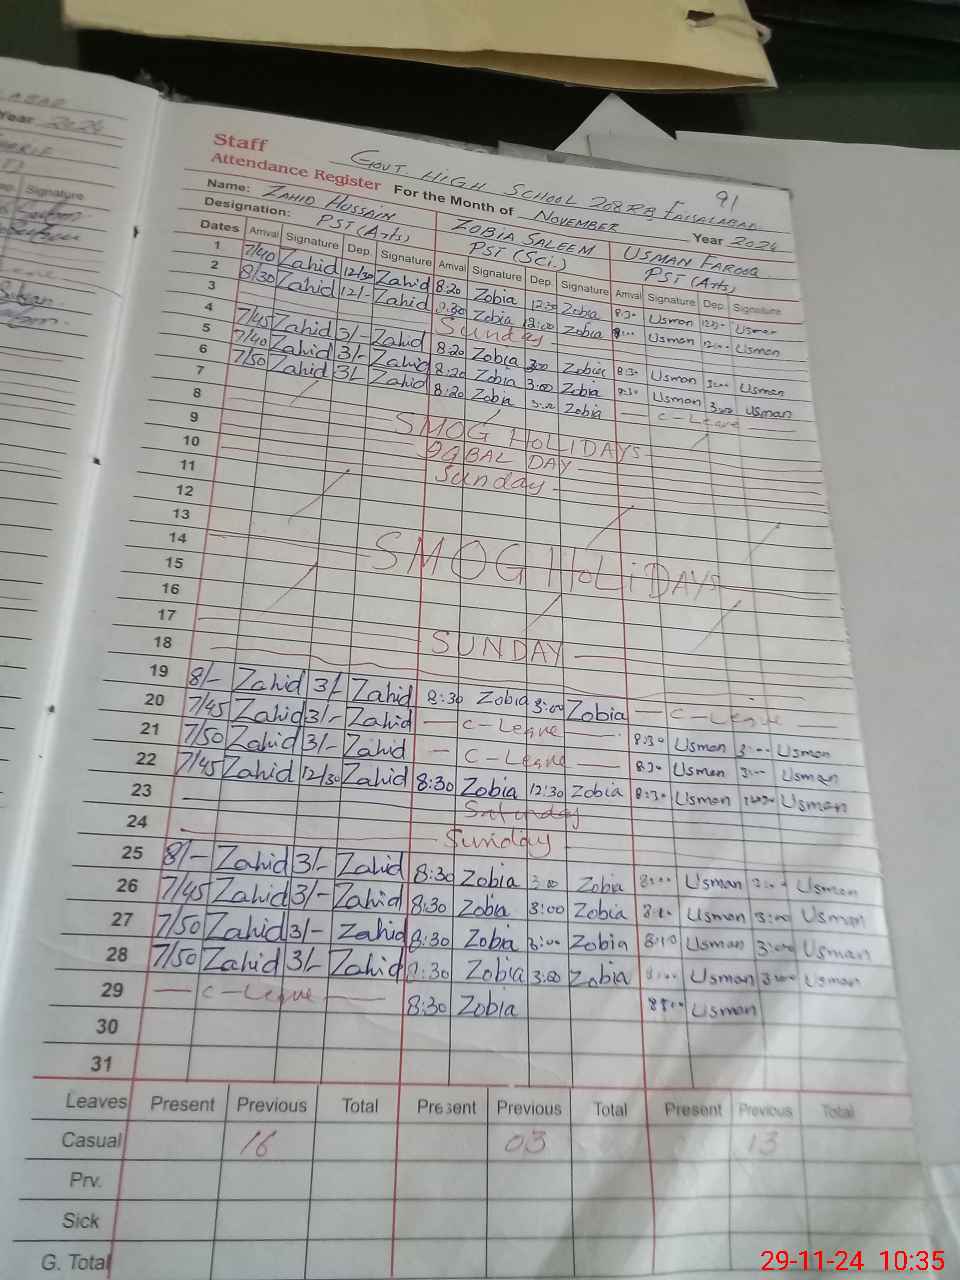 Year 2024
Signature
Staff
Attendance Register
GOVT. HIGH SCHOOL 208 RB FAISALABAD
91
For the Month of NOVEMBER Year 2024
Name: ZAHID HUSSAIN ZOBIA SALEEM USMAN FAROOQ
Designation: PST (Arts) PST (Sci.) PST (Arts)
Dates Arrival Signature Dep. Signature Arrival Signature Dep. Signature Arrival Signature Dep. Signature
1 7/40 Zahid 12/30 Zahid 8:20 Zobia 12:30 Zobia 8:30 Usman 12:30 Usman
2 8/30 Zahid 12/- Zahid 8:30 Zobia 12:00 Zobia Usman 12:00 Usman
3 Sunday
4 7/45 Zahid 3/- Zahid 8:20 Zobia 3:00 Zobia 8:30 Usman 3:00 Usman
5 7/40 Zahid 3/- Zahid 8:20 Zobia 3:00 Zobia 8:30 Usman 3:00 Usman
6 7/50 Zahid 3/- Zahid 8:20 Zobia 3:00 Zobia C-Leave
7
8 SMOG HOLIDAYS
9 IQBAL DAY
10 Sunday
11
12
13
14 SMOG HOLIDAYS
15
16
17 SUNDAY
18
19 8/- Zahid 3/- Zahid 8:30 Zobia 3:00 Zobia C-Leave
20 7/45 Zahid 3/- Zahid C-Leave 8:30 Usman 3:00 Usman
21 7/50 Zahid 3/- Zahid C-Leave 8:30 Usman 3:00 Usman
22 7/45 Zahid 12/30 Zahid 8:30 Zobia 12:30 Zobia 8:30 Usman 12:30 Usman
23 Saturday
24 Sunday
25 8/- Zahid 3/- Zahid 8:30 Zobia 3:00 Zobia 8:00 Usman 3:00 Usman
26 7/45 Zahid 3/- Zahid 8:30 Zobia 3:00 Zobia 8:10 Usman 3:00 Usman
27 7/50 Zahid 3/- Zahid 8:30 Zobia 3:00 Zobia 8:10 Usman 3:00 Usman
28 7/50 Zahid 3/- Zahid 8:30 Zobia 3:00 Zobia 8:00 Usman 3:00 Usman
29 C-Leave 8:30 Zobia Usman
30
31
Leaves Present Previous Total Present Previous Total Present Previous Total
Casual 16 03 13
Prv.
Sick
G. Total
29-11-24 10:35